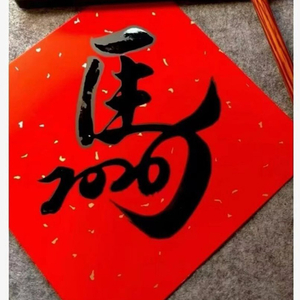 馬
2026